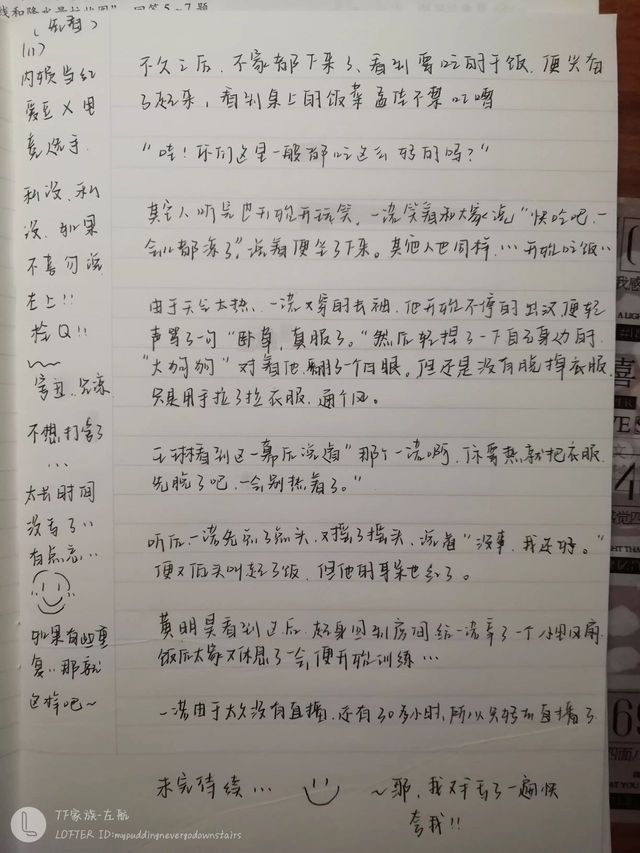 线和降水量 图”，回答5~7题
(1)
内娱当红
爱豆X电
竞选手.
私设.私
设.如果
不喜勿说
左上!!
栓Q!!
不想打字了
...
太长时间
没写了..
有点忘...
如果有些重
复..那就
这样吧~
不久之后,大家都下来了,看到要吃的午饭,便尖
了起来,看到桌上的饭菜
"哇!你们这里一般都吃这么好的吗?"
其它人听完也开始开玩笑,一诺笑着和大家说"快吃吧,一
会儿都冻了",说着便坐了下来。其他人也同样,...开始吃饭..
由于天气太热,一诺又穿的长袖,他开始不停的出汗便轻
声骂了一句"卧草,真服了。"然后轻捏了一下自己身边的
"大狗狗"对着他翻了一个白眼。但还是没有脱掉衣服
只是用手拉了拉衣服,通个风。
王琳看到这一幕后说道"那个一诺啊,你要热就把衣服
先脱了吧,一会别热着了。"
听后一诺先点了点头,又摇了摇头,说着"没事,我还好。"
便又低头 起了饭,但他的耳朵也红了。
黄明昊看到这后,起身回到房间给一诺拿了一个小电风扇
饭后大家又休息了一会,便开始训练...
一诺由于太久没有直播,还有30多小时,所以只好去直播了
未完待续...
~耶,我又手写了一遍快
夸我!!
TF家族-左航
LOFTER ID:mypuddingnevergodownstairs